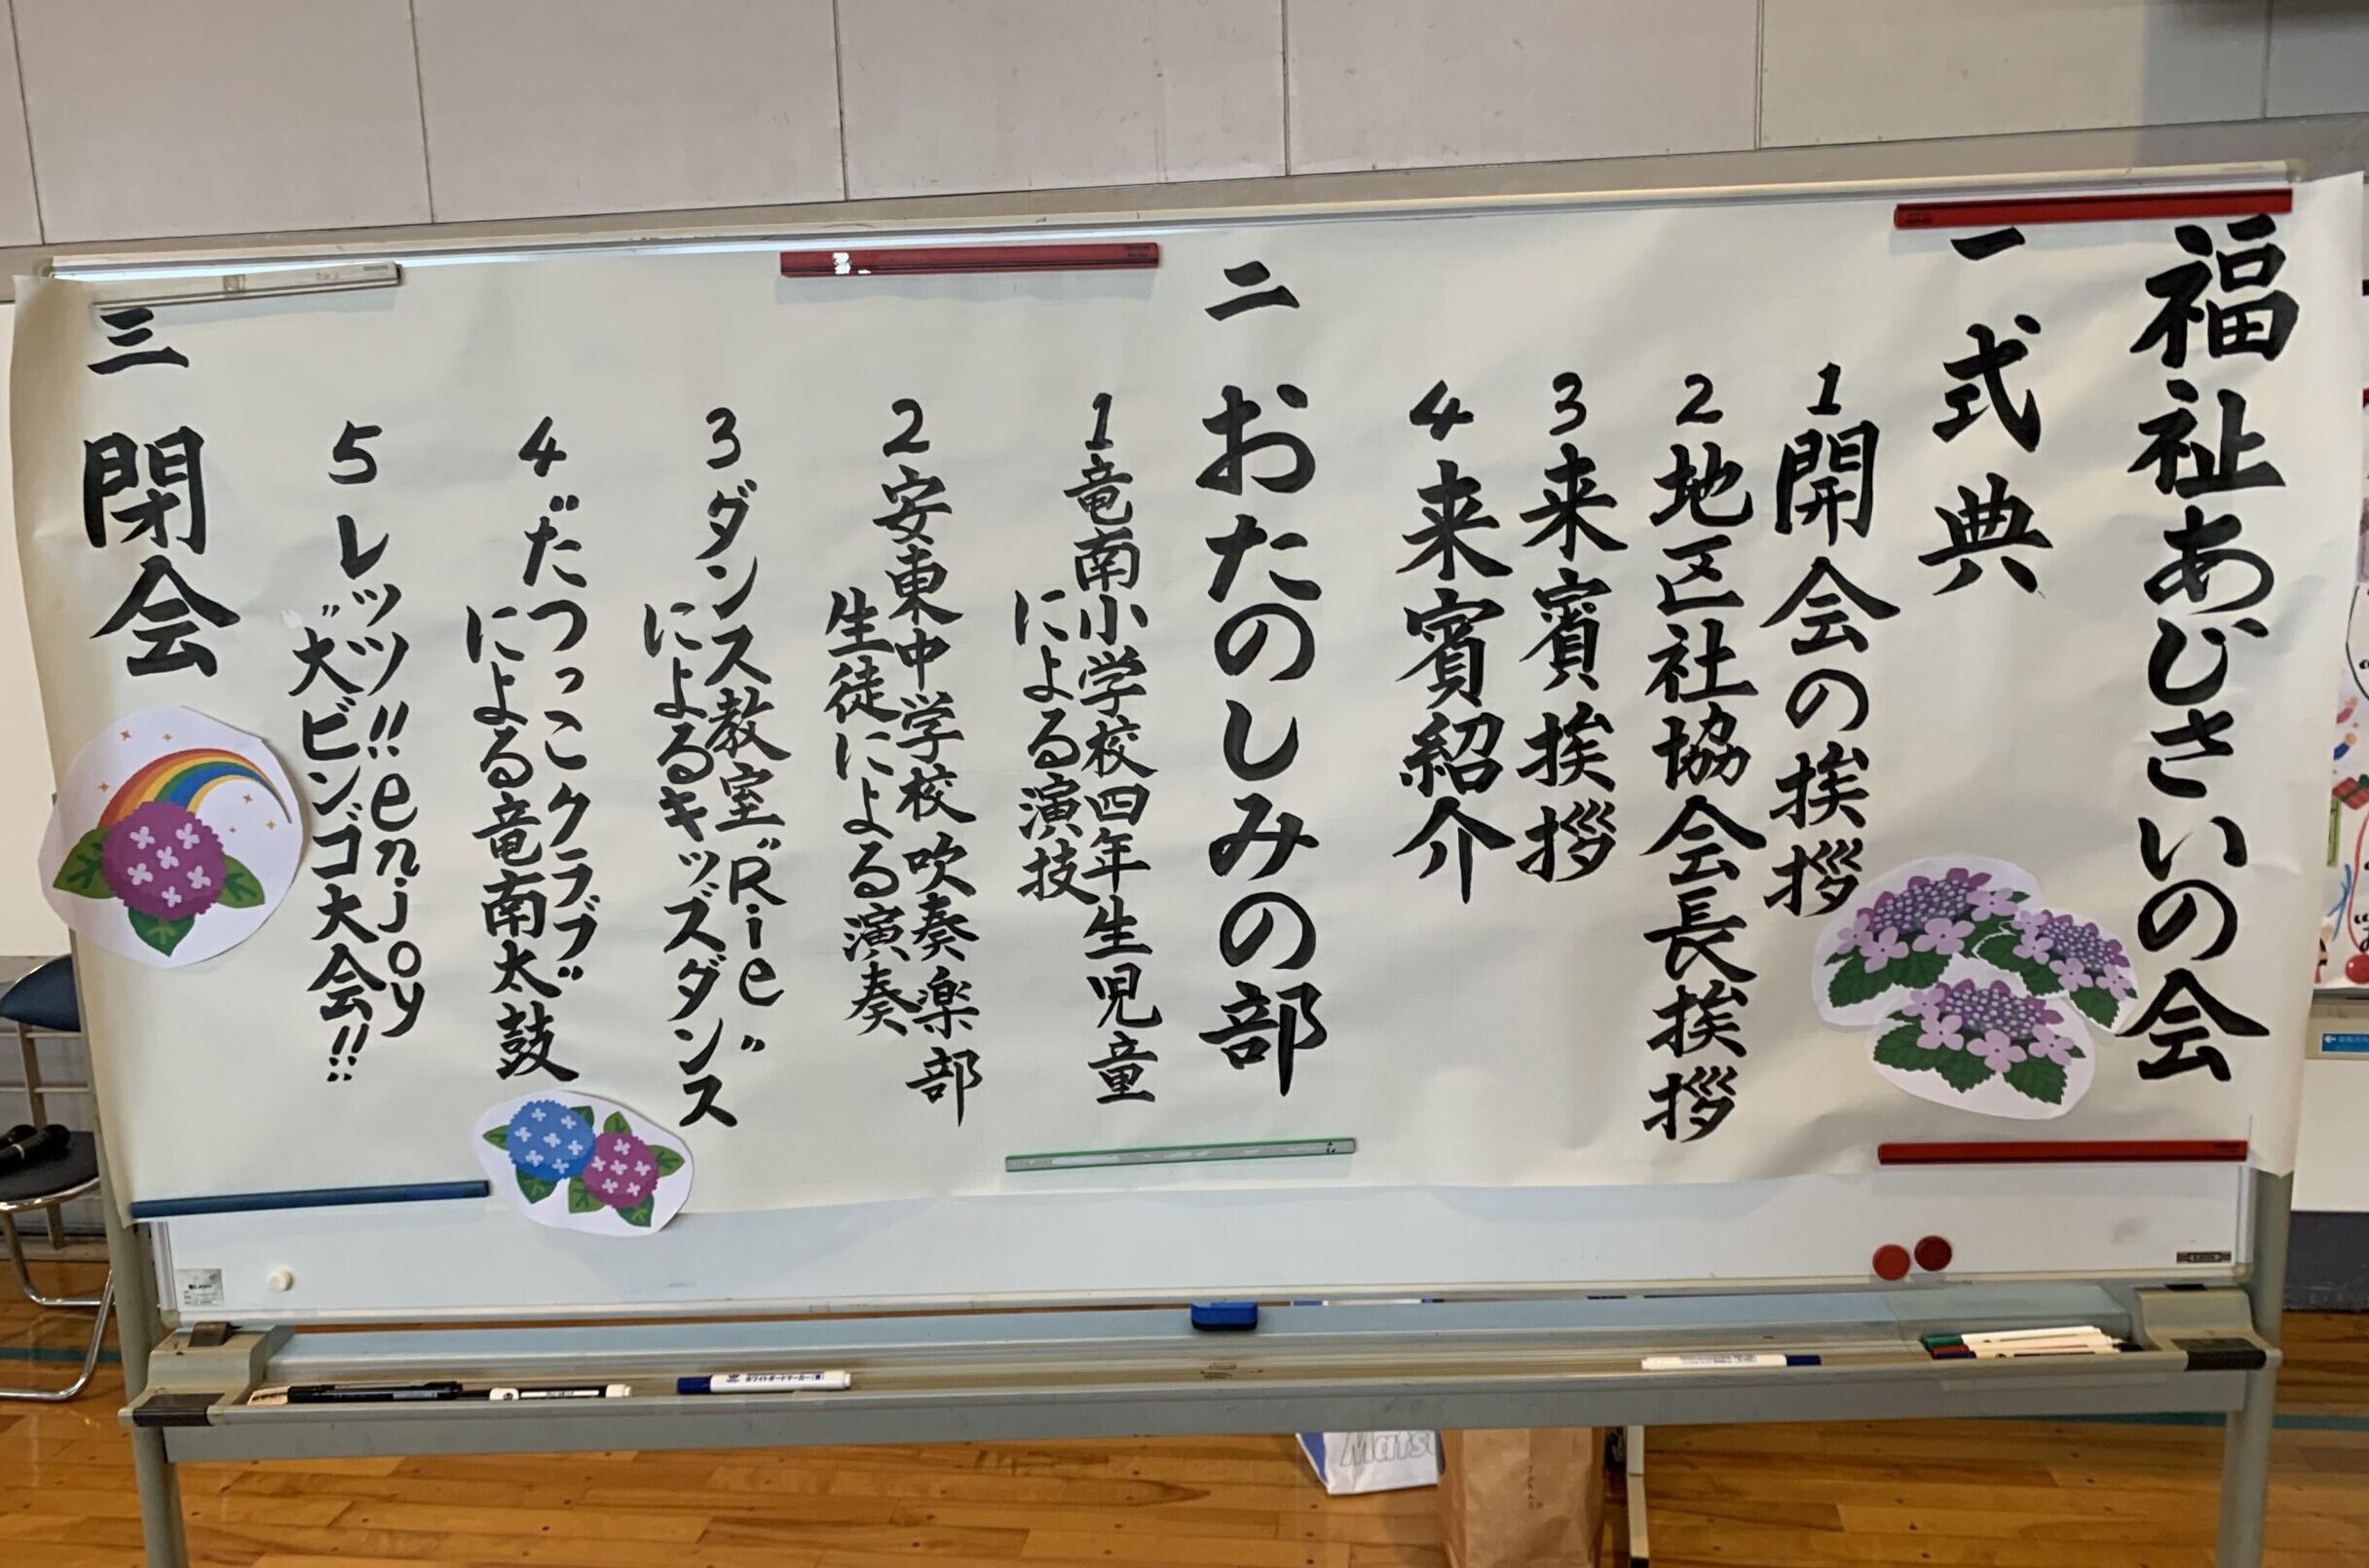 福祉あじさいの会
一 式典
1 開会の挨拶
2 地区社協会長挨拶
3 来賓挨拶
4 来賓紹介
二 おたのしみの部
1 竜南小学校四年生児童
による演技
2 安東中学校吹奏楽部
生徒による演奏
3 ダンス教室"Rie"
によるキッズダンス
4 "たつっこクラブ"
による竜南太鼓
5 レッツ!!enjoy
"大ビンゴ大会!!"
三 閉会
ホワイトボードマーカー